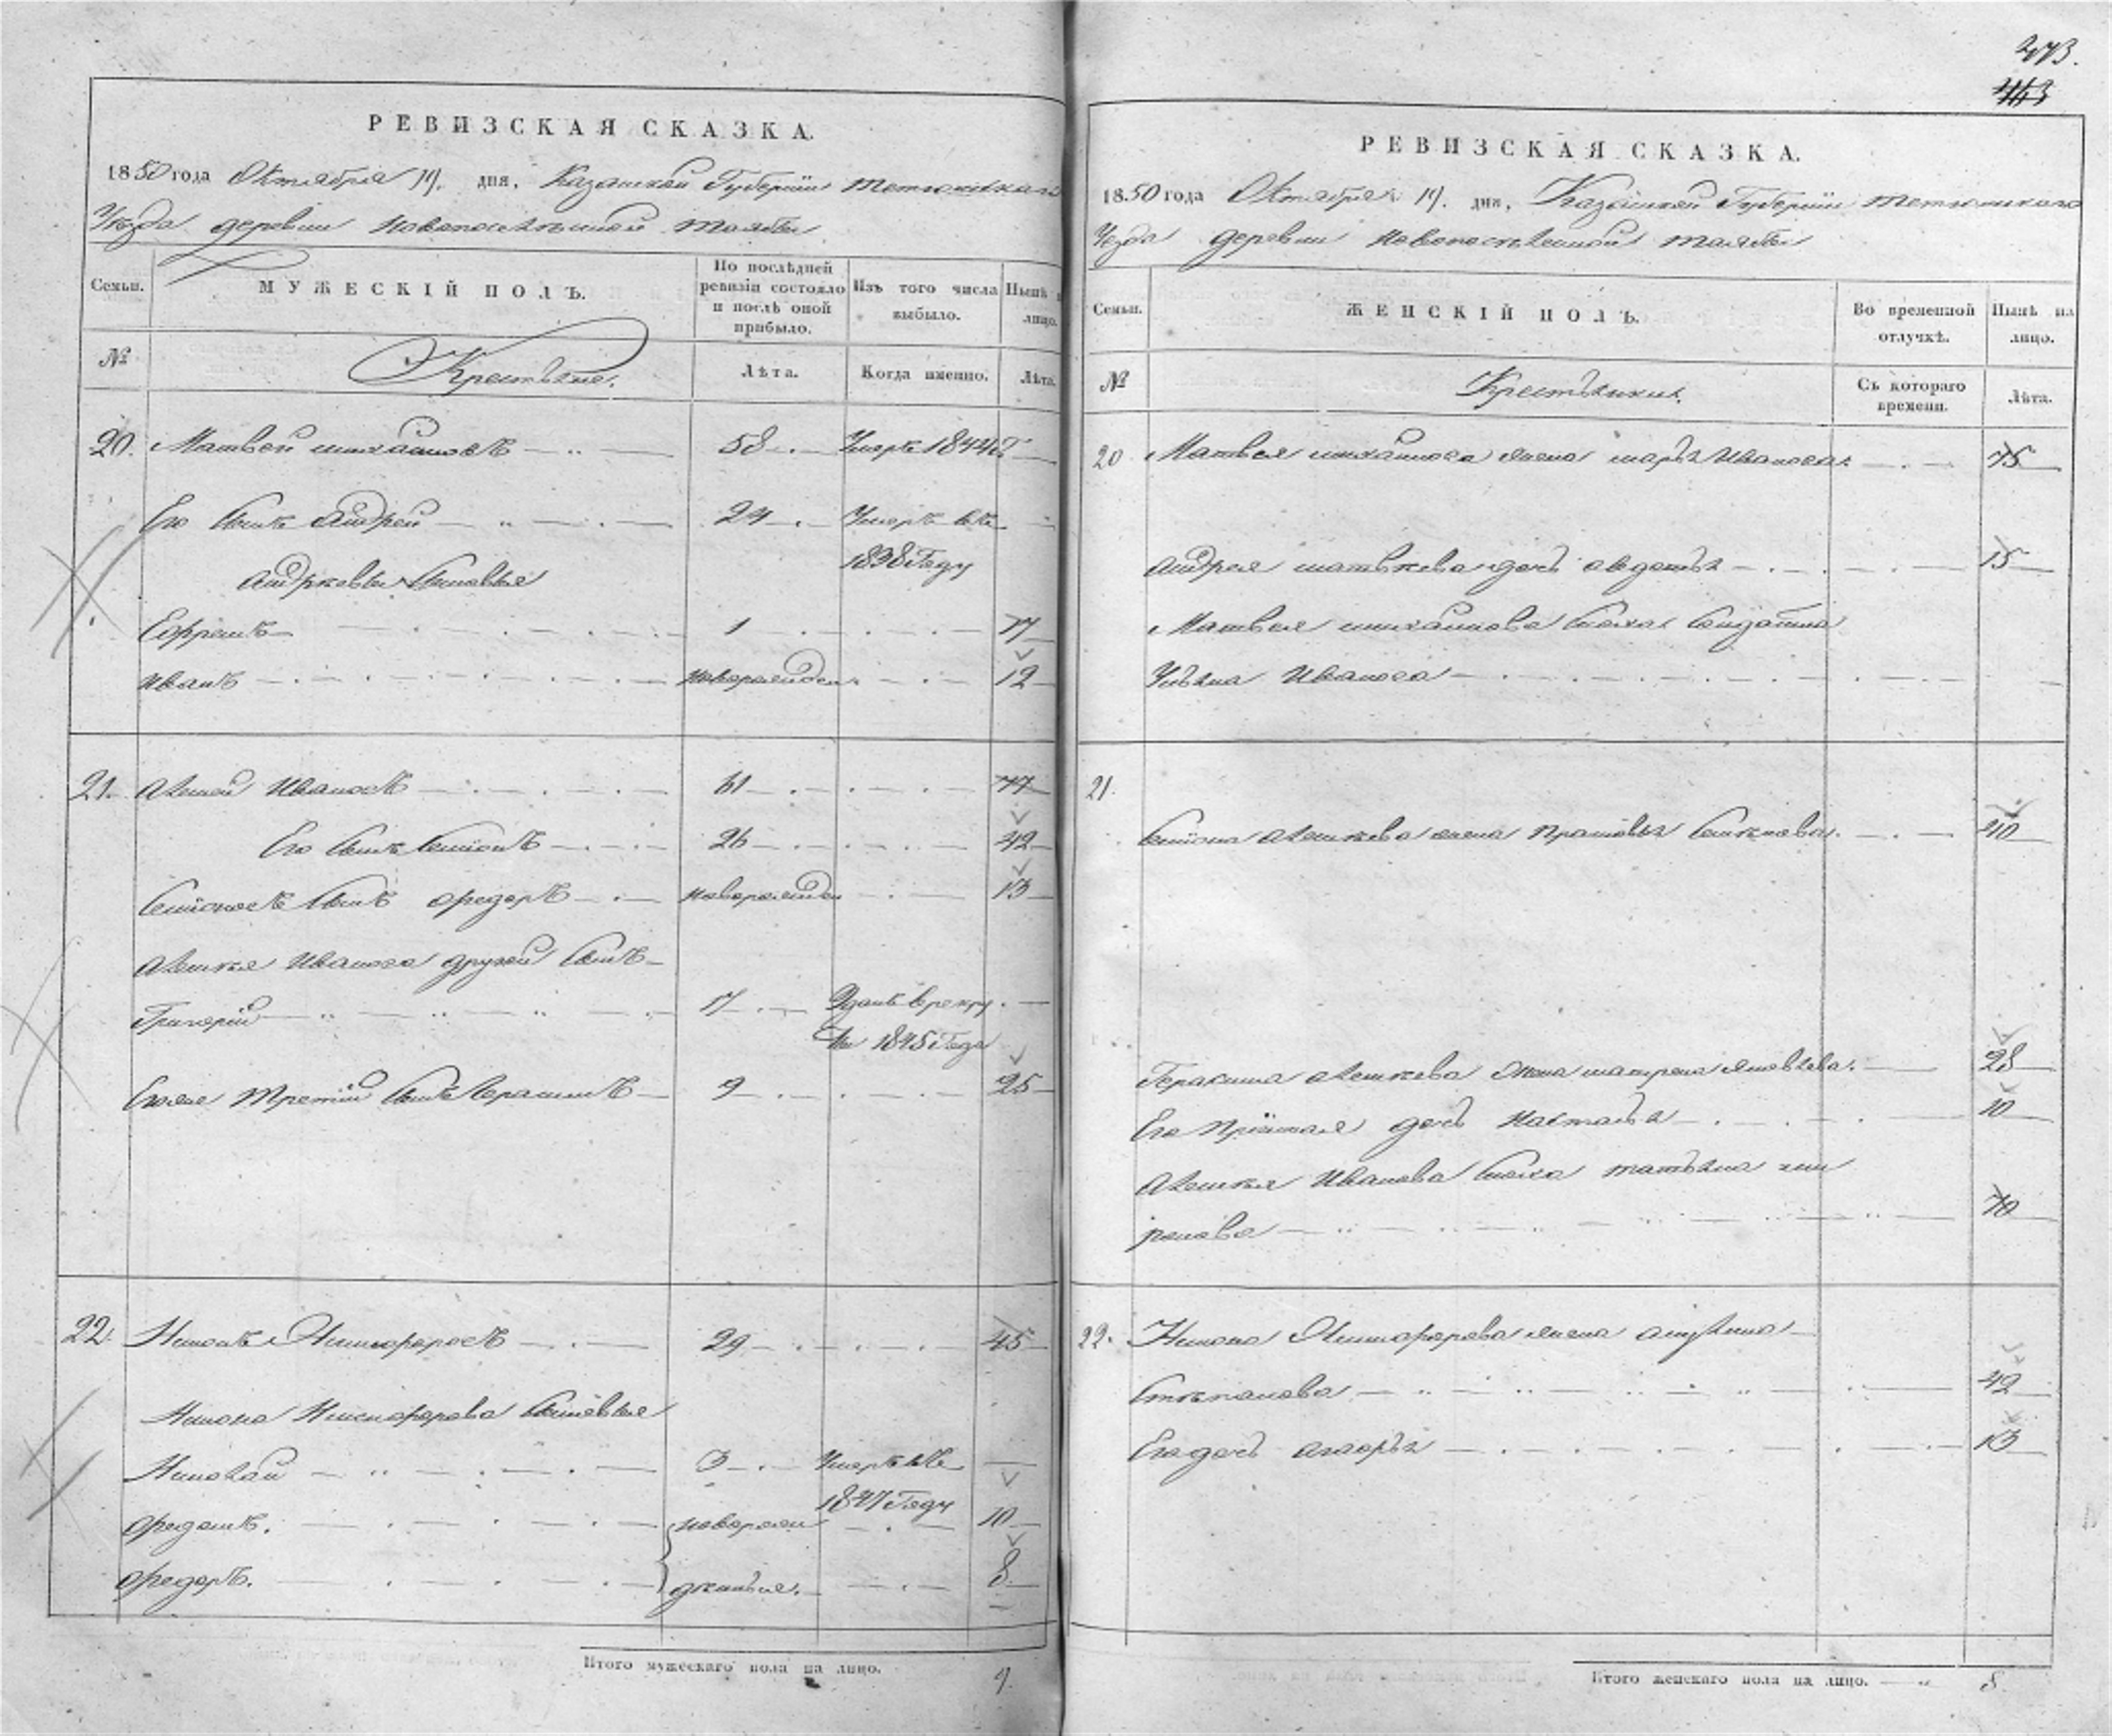 273.
443
РЕВИЗСКАЯ СКАЗКА.
1850 года Октября 19. дня, Казанской Губернии Тетюшскаго
Уезда деревни Новопоселенной Таябы
Семьи. МУЖЕСКІЙ ПОЛЪ. По послѣдней ревизіи состояло и послѣ оной прибыло. Изъ того числа выбыло. Нынѣ на лицо.
№ Крестьяне. Лѣта. Когда именно. Лѣта.
20. Матвей Михайловъ 58 Умеръ 1844 Г
Его сынъ Андрей 24 Умеръ въ
1838 Году
Андреевы сыновья
Ефремъ 1 17
Иванъ новорожден 12
21. Алексей Ивановъ 61 77
Его сынъ Семионъ 26 42
Семионовъ сынъ Федоръ новорожден 13
Алексея Иванова другой сынъ
Григорій 17 Отданъ в рекру
ты 1845 Года
Егоже третий сынъ Герасимъ 9 25
22. Никонъ Никифоровъ 29 45
Никона Никифорова сыновья
Николай 3 Умеръ въ
1847 Году
Федотъ. новорож 10
Федоръ. денные. 8
Итого мужескаго пола на лицо. 9.
РЕВИЗСКАЯ СКАЗКА.
1850 года Октября 19. дня, Казанской Губернии Тетюшскаго
Уезда деревни Новопоселенной Таябы
Семьи. ЖЕНСКІЙ ПОЛЪ. Во временной отлучкѣ. Нынѣ на лицо.
№ Крестьянки. Съ котораго времени. Лѣта.
20 Матвея Михайлова жена Марья Иванова 75
Андрея Матвеева дочь Авдотья 15
Матвея Михайлова сноха солдатка
Ульяна Иванова
21.
Семиона Алексеева жена Прасковья Семенова 40
Герасима Алексеева жена Матрена Яковлева. 28
Его приимная дочь Настасья 10
Алексея Иванова сноха Татьяна
22. Никона Никифорова жена Акулина
Степанова 42
Его дочь 13
Итого женскаго пола на лицо. 8